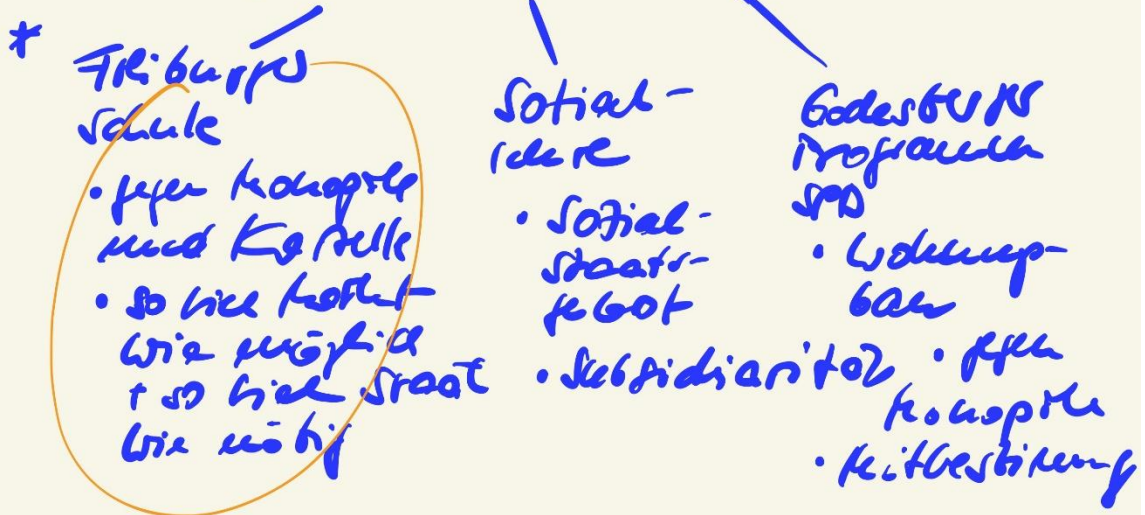 *
Freiburger
Schule
• gegen Monopole
und Kartelle
• so viel Markt
wie möglich
+ so viel Staat
wie nötig
Sozial-
lehre
• Sozial-
staats-
gebot
• Subsidiarität
Godesberger
Programm
SPD
• Wohnungs-
bau
• gegen
Monopole
• Mitbestimmung